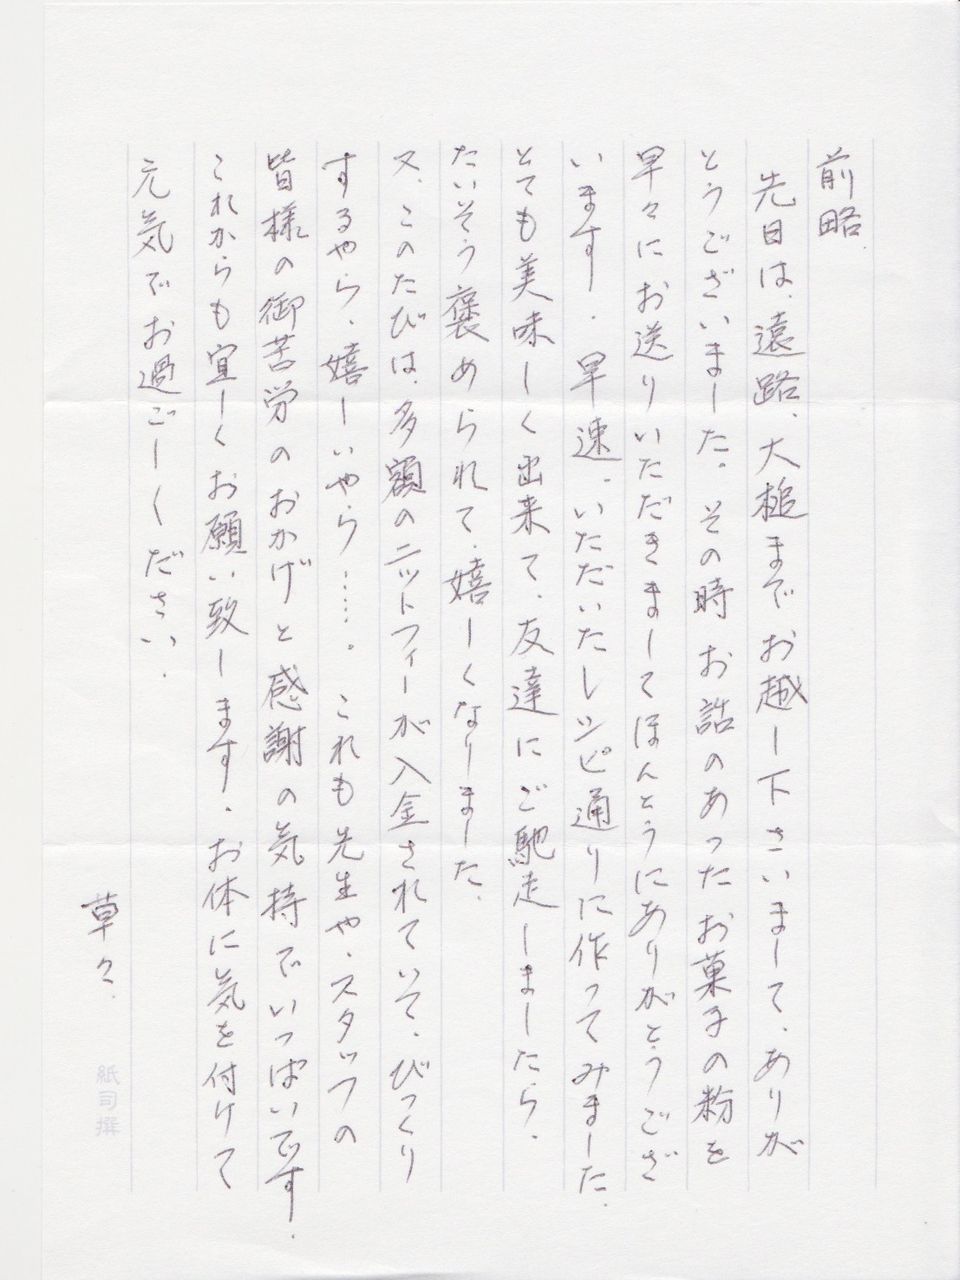 前略
先日は、遠路、大槌までお越し下さいまして、ありが
とうございました。その時お話のあったお菓子の粉を
早々にお送りいただきましてほんとうにありがとうござ
います。早速、いただいたレシピ通りに作ってみました。
とても美味しく出来て、友達にご馳走しましたら、
たいそう褒められて、嬉しくなりました。
又、このたびは、多額のニットフィーが入金されていて、びっくり
するやら、嬉しいやら……。これも先生や、スタッフの
皆様の御苦労のおかげと感謝の気持でいっぱいです。
これからも宜しくお願い致します。お体に気を付けて
元気でお過ごしください。
草々、
紙司撰